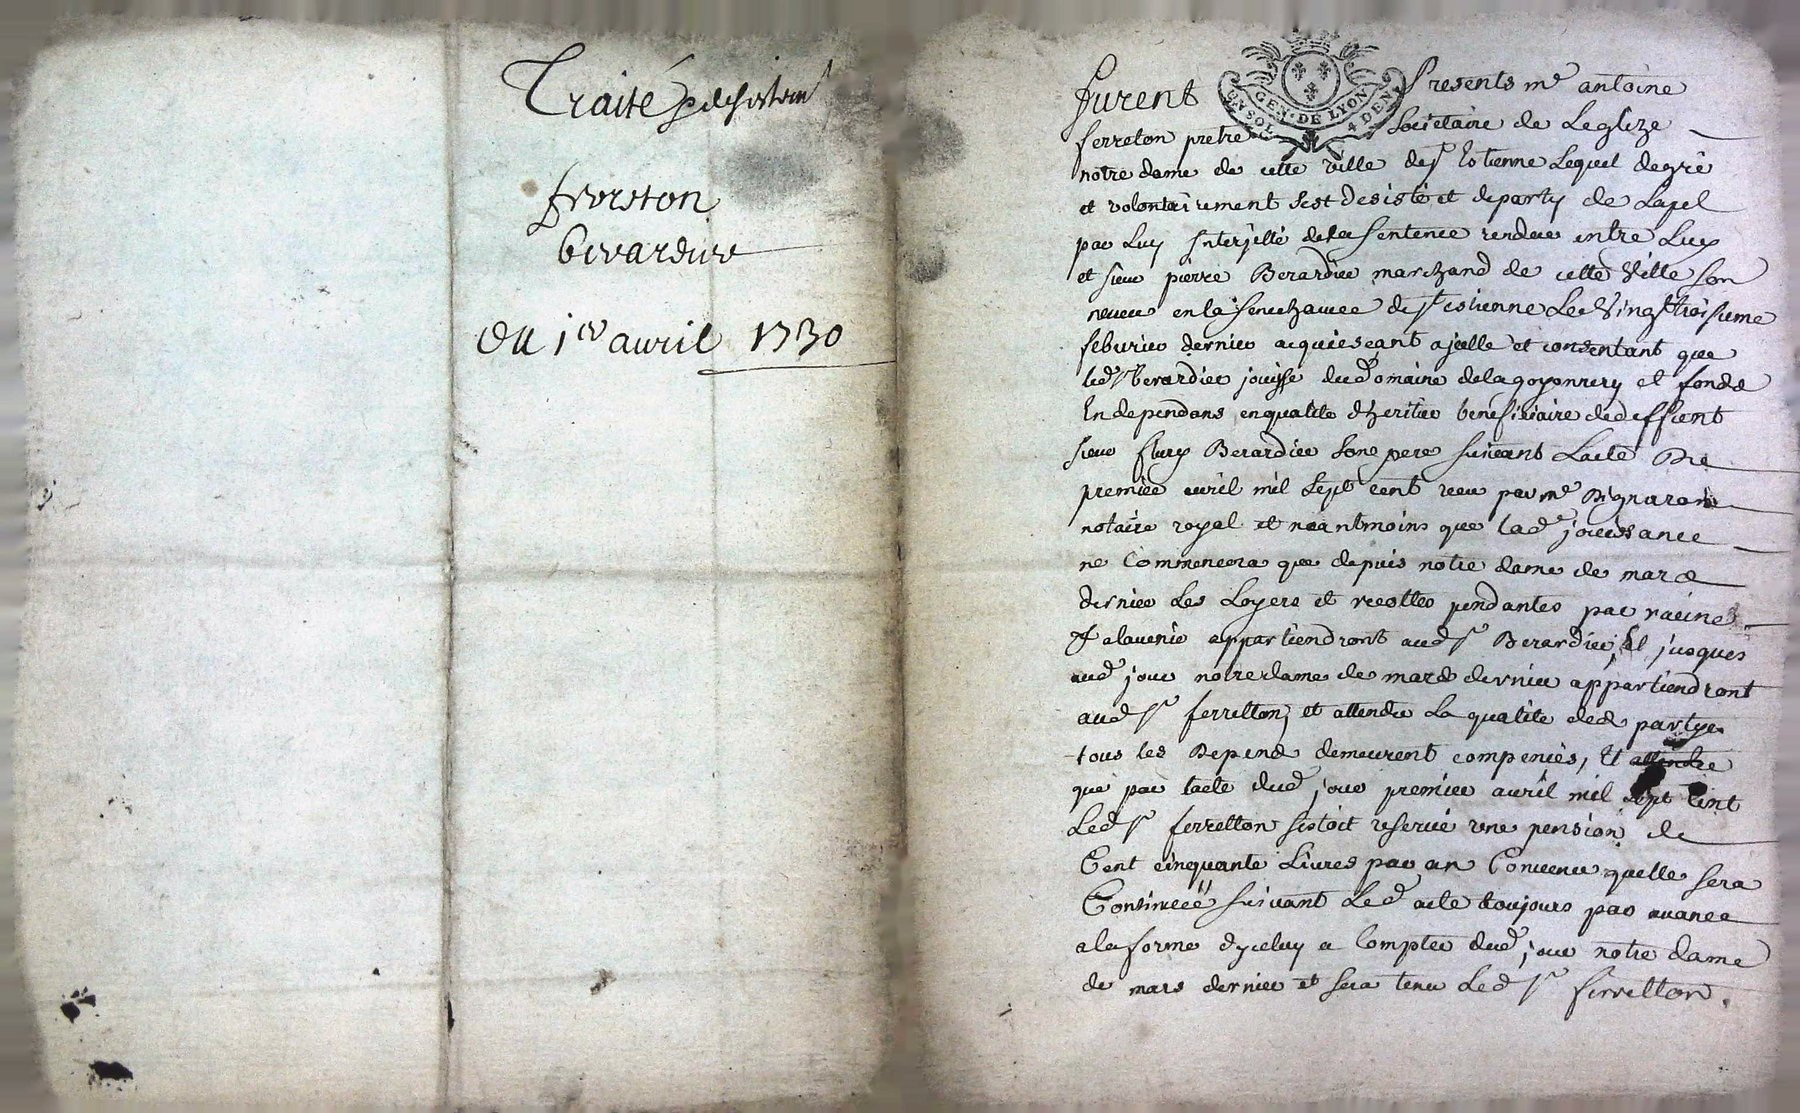 Traité
fferreton
Berardier
Du 1er avril 1730
GEN · DE LYON
EN SOL 4 DEN
furent Presents me antoine
ferreton pretre Societaire de Leglize
notre dame de cette ville de st Estienne Lequel de gré
et volontairement sest desisté et departy de Lapel
par Luy Interjetté de la sentence rendue entre Luy
et sieur pierre Berardier marchand de cette ville son
neveu en la senechaucée de st estienne Le vingt troisieme
feburier dernier acquiesçant a jcelle et consentant que
led sr Berardier jouisse dud domaine de la goyonnery et fonds
En dependans en qualité d'heritier beneficiaire de deffunt
sieur fleury Berardier son pere suivant Lacte du
premier avril mil sept cent receu par me
notaire royal et neantmoins que lad jouissance
ne Commencera que depuis notre dame de mars
dernier Les Loyers et recoltes pendantes par racines
et alavenir appartiendront aud sr Berardier, Et jusques
aud jour notre dame de mars dernier appartiendront
aud sr ferretton, et attendu La qualité des partyes
tous les Depends demeurent compensés, Et attendu
que par lacte dud jour premier avril mil sept Cent
Led sr ferretton sestoit reservé une pension de
Cent cinquante Livres par an Convenu quelle sera
Continuée suivant Led acte toujours par avance
a la forme d'yceluy a Compter dud jour notre dame
de mars dernier et sera tenu Led sr ferretton.